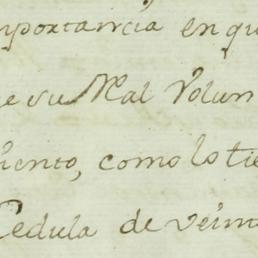 mportancia en qu
e su Real Volun
iento, como lo tie
Cedula de veint